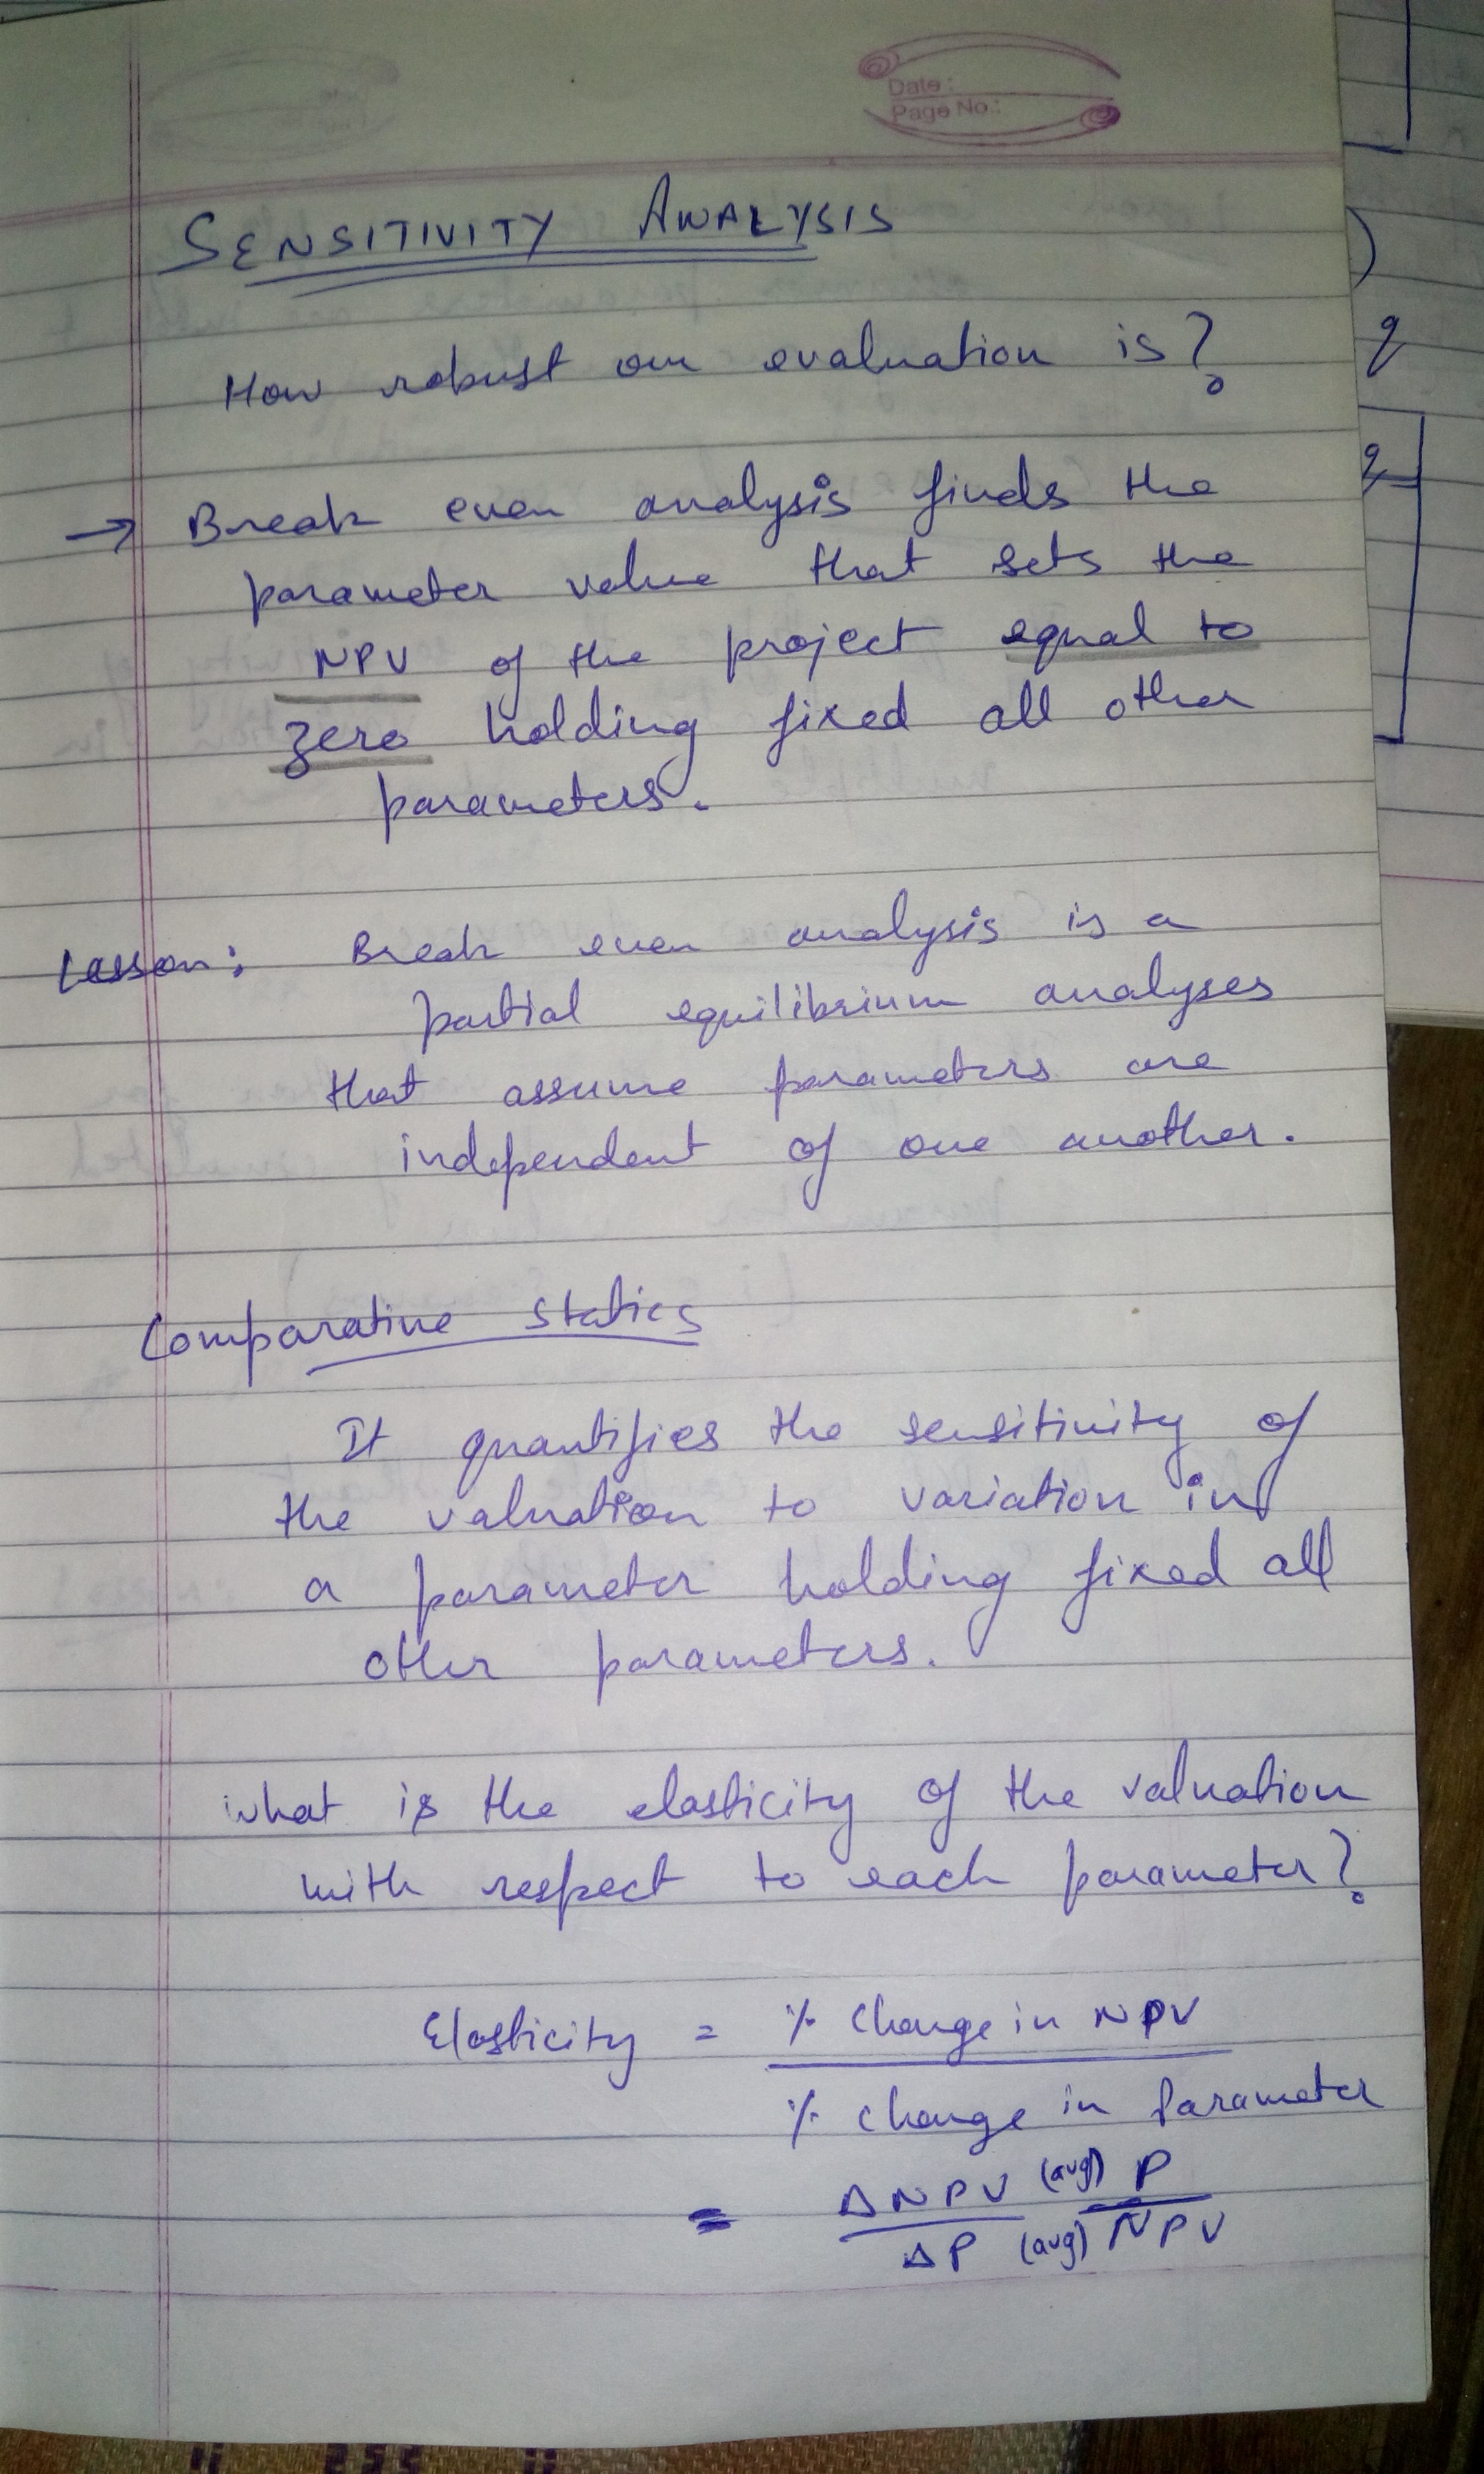 Date :
Page No.:
SENSITIVITY ANALYSIS
How robust our evaluation is?
→ Break even analysis finds the
parameter value that sets the
NPV of the project equal to
zero holding fixed all other
parameters.
Lesson: Break even analysis is a
partial equilibrium analyses
that assume parameters are
independent of one another.
Comparative Statics
It quantifies the sensitivity of
the valuation to variation in
a parameter holding fixed all
other parameters.
what is the elasticity of the valuation
with respect to each parameter?
Elasticity = % change in NPV
% change in Parameter
= ΔNPV (avg) P
ΔP (avg) NPV